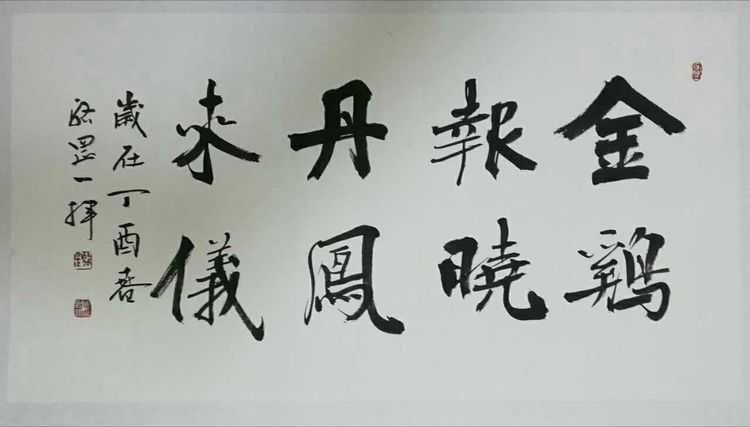 金鷄
報曉
丹鳳
来儀
歲在丁酉春
罡一揮